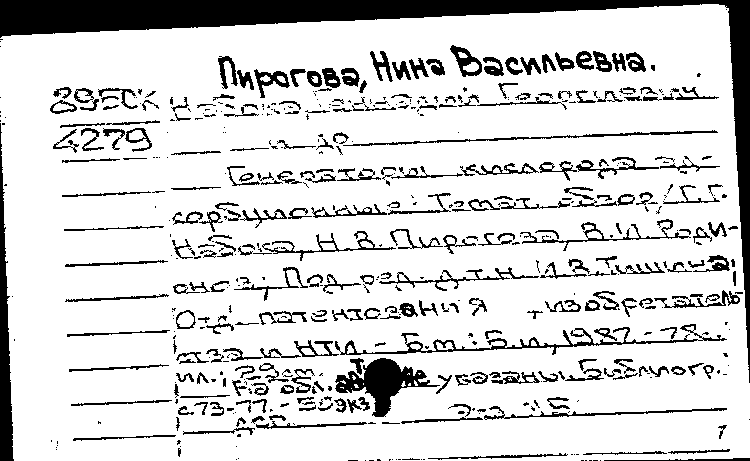 Пирогова, Нина Васильевна.
89ЕСК Набока, Геннадий Георгиевич
4279 и др
Генераторы кислорода ад-
сорбционные: Темат. обзор/Г.Г.
Набока, Н.В. Пирогова, В.И. Роди-
онов; Под ред. д.т.н. И.В. Тишина;
Отд. патентования, изобретатель
ства и НТИ. - Б.м.: Б.и., 1987. - 78с.:
ил.; 29см.
На обл. авт. не указаны. Библиогр.:
с.73-77. - 50экз
ДСП. Экз.
1